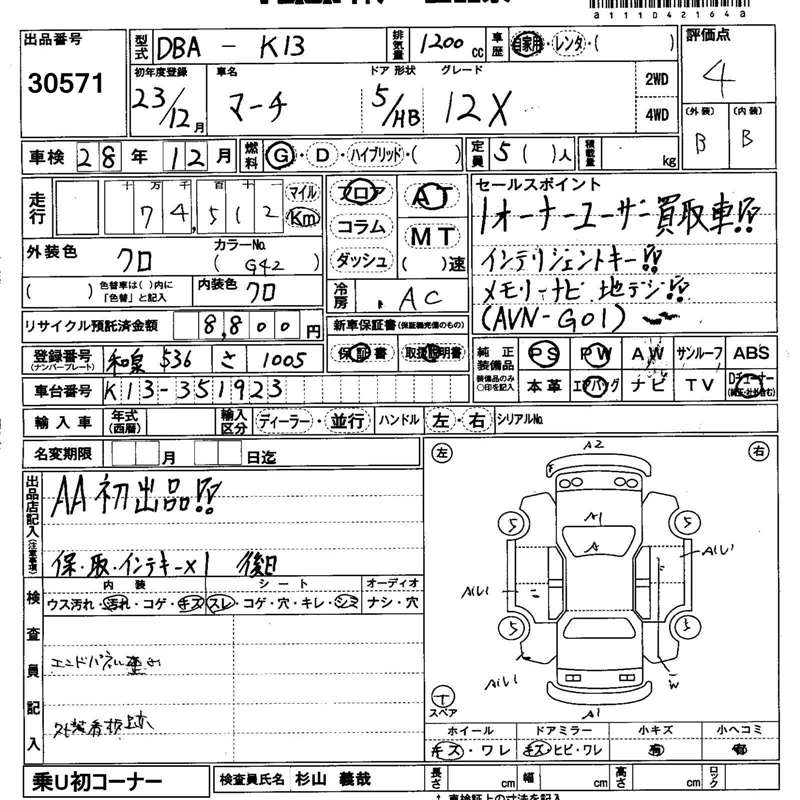 a111D42164a
出品番号 30571
型式 DBA - K13 排気量 1200 cc 車歴 自家用・レンタ・( )
評価点 4
初年度登録 23/12月 車名 マーチ ドア 形状 5/HB グレード 12X 2WD 4WD
(外装) B (内装) B
車検 28年 12月 燃料 G・D・ハイブリッド・( ) 定員 5( )人 積載量 kg
走行 十万千百十 74,512 マイル Km
フロア コラム ダッシュ
AT MT ( )速
セールスポイント
1オーナーユーザー買取車!!
インテリジェントキー!!
メモリーナビ 地デジ!!
(AVN-G01)
外装色 クロ カラーNo. ( G42 )
( ) 色替車は( )内に「色替」と記入 内装色 クロ
冷房 AC
リサイクル預託済金額 8,800円
新車保証書(保証継続完備のもの)
保証書 取扱説明書
登録番号 (ナンバープレート) 和泉 536 さ 1005
車台番号 K13-351923
純正装備品 装備品のみ○印を記入
PS PW AW サンルーフ ABS
本革 エアバッグ ナビ TV Dチューナー
輸入車 年式(西暦) 輸入区分 ディーラー・並行 ハンドル 左・右 シリアルNo.
名変期限 月 日迄
出品店記入(注意事項)
AA初出品!!
保・取・インテキー×1 後日
検査員記入
内装 シート オーディオ
ウス汚れ・汚れ・コゲ・キズ スレ・コゲ・穴・キレ・シミ ナシ・穴
エンドパネル歪み
外装看板跡
左 右
A2
A1
A
5 5
A(L) A(L)
5 5
A(L) W
A1
T スペア
ホイール ドアミラー 小キズ 小ヘコミ
キズ・ワレ キズ・ヒビ・ワレ 有 有
乗U初コーナー 検査員氏名 杉山 義哉 長さ cm 幅 cm 高さ cm ロック
↑ 車検証上の寸法を記入